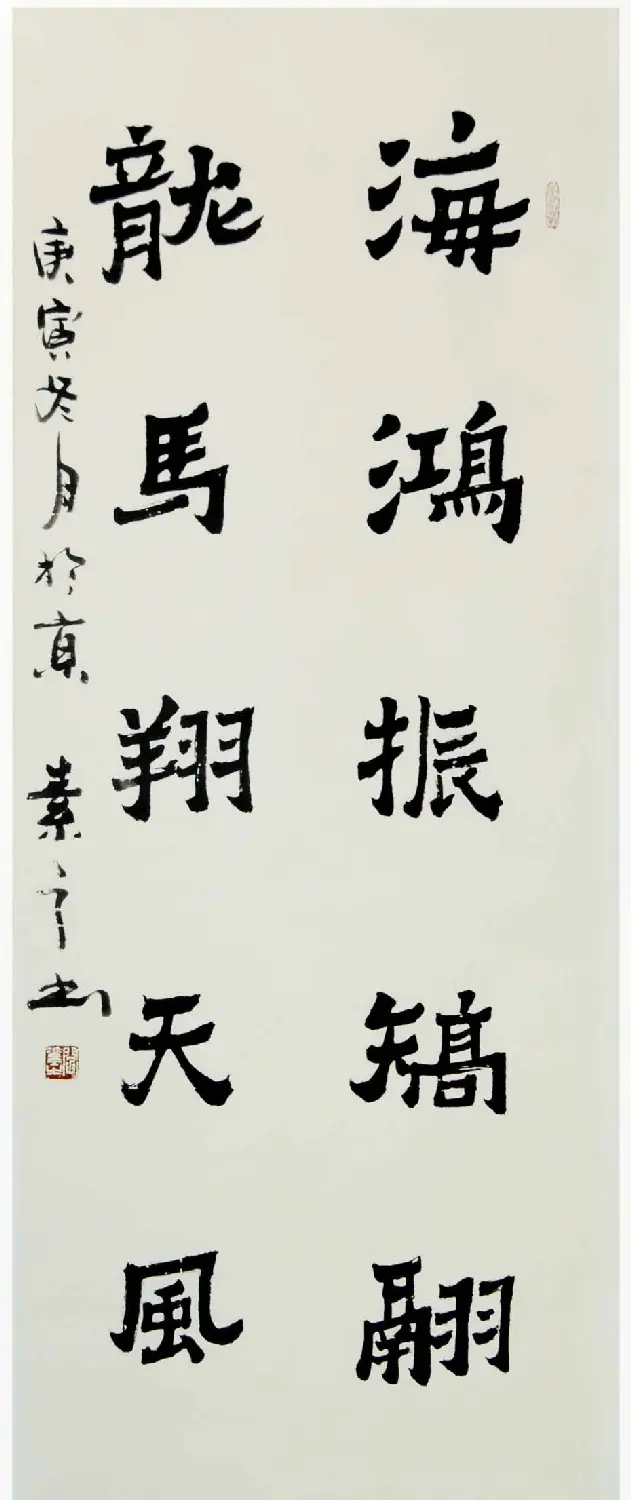 海鴻振矯翮
龍馬翔天風
庚寅冬月於京 素平书